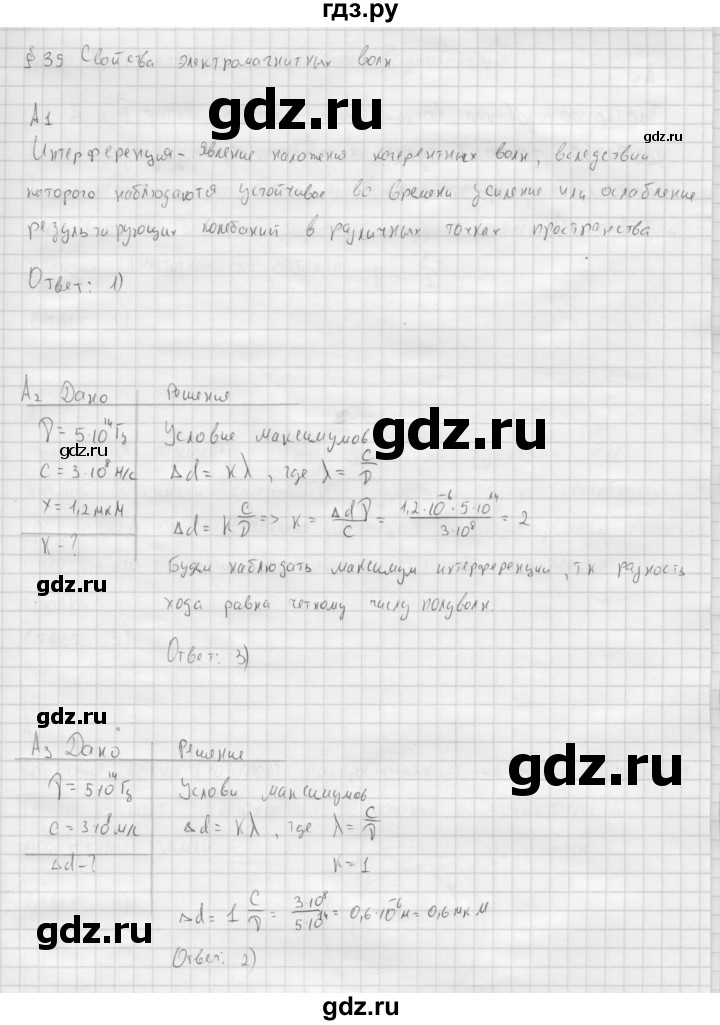 гдз.ру
§ 39 Свойства электромагнитных волн
gdz.ru
gdz.ru
А1
Интерференция - явление наложения когерентных волн, вследствии
которого наблюдаются устойчивое во времени усиление или ослабление
результирующих колебаний в различных точках пространства
Ответ: 1)
А2 Дано Решения
gdz.ru
ν = 5·10¹⁴ Гц Условие максимумов
gdz.ru
c = 3·10⁸ м/с Δd = кλ, где λ = c/ν
x = 1,2 мкм Δd = к c/ν => к = Δdν/c = 1,2·10⁻⁶·5·10¹⁴/3·10⁸ = 2
к - ?
Будем наблюдать максимум интерференции, т к разность
gdz.ru
хода равна четному числу полуволн.
Ответ: 3)
gdz.ru
А3 Дано Решение
gdz.ru
ν = 5·10¹⁴ Гц Услови максимумов
c = 3·10⁸ м/с Δd = кλ, где λ = c/ν
Δd - ? к = 1
gdz.ru
Δd = 1 c/ν = 3·10⁸/5·10¹⁴ = 0,6·10⁻⁶ м = 0,6 мкм
Ответ: 2)
gdz.ru
gdz.ru